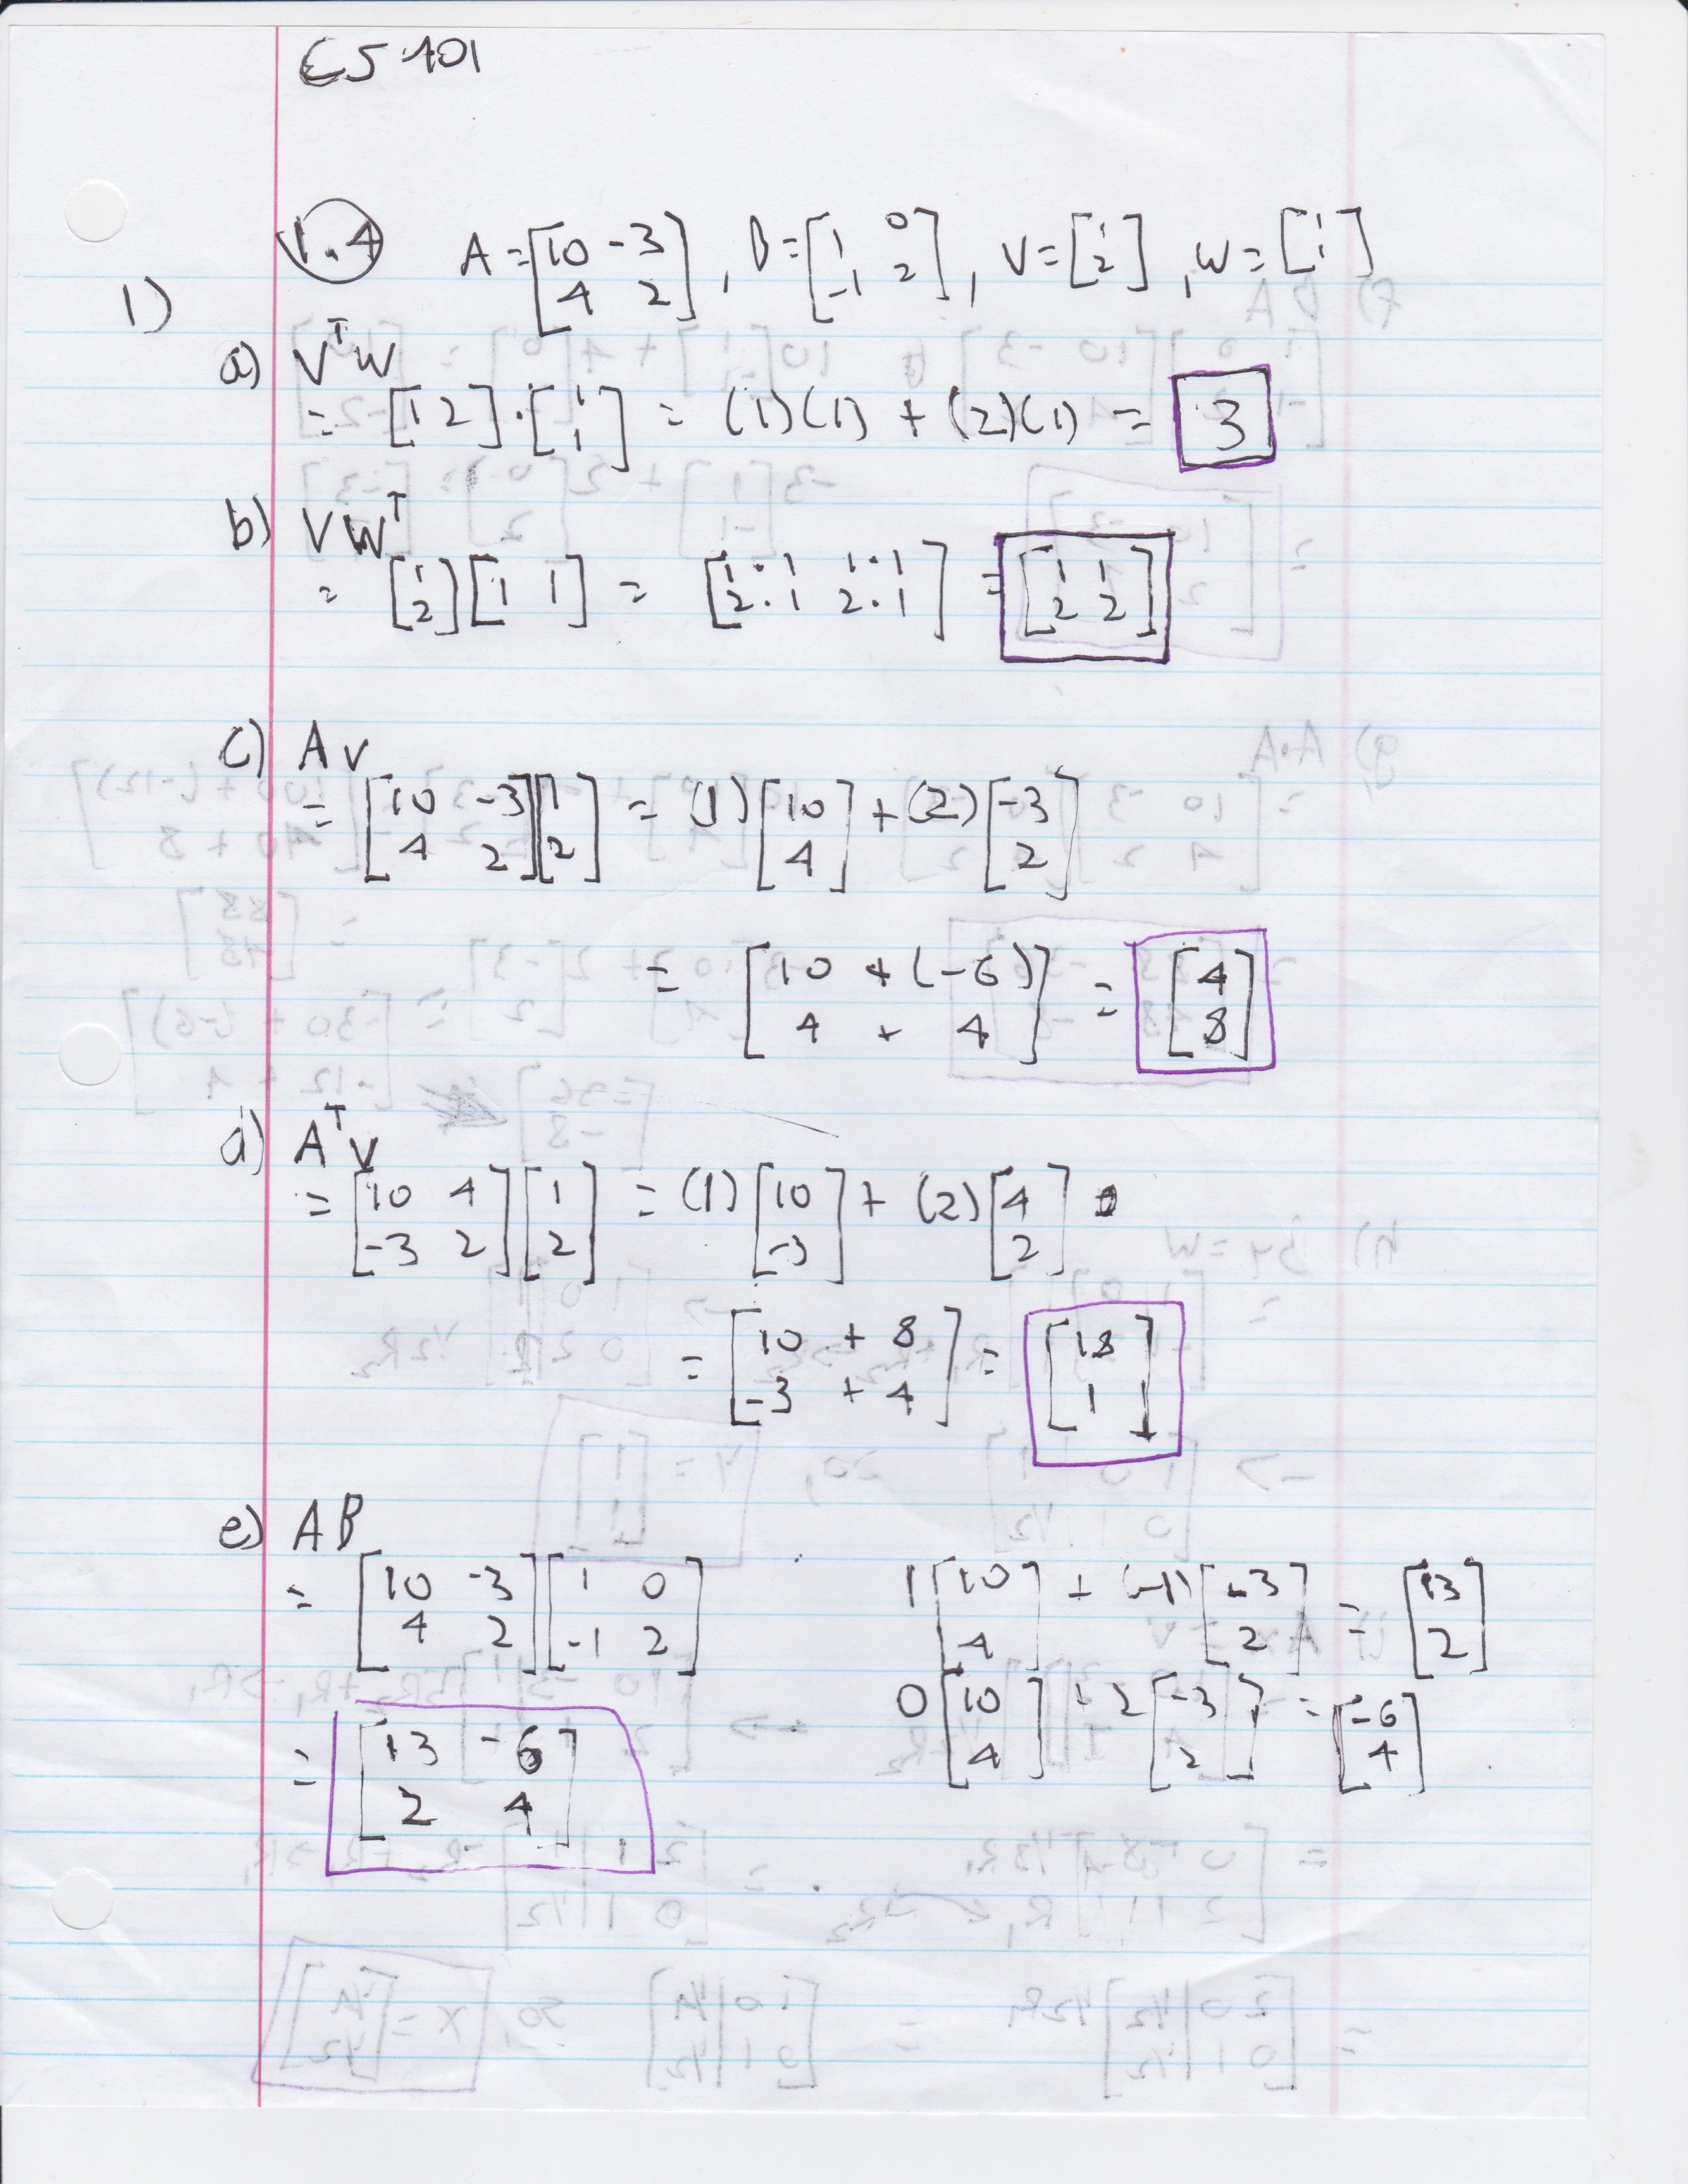 CS 401
1.4 A = [10 -3; 4 2], B = [1 0; -1 2], V = [1; 2], W = [1; 1]
1)
a) V^T W
= [1 2] · [1; 1] = (1)(1) + (2)(1) = 3
b) V W^T
= [1; 2] [1 1] = [1·1 1·1; 2·1 2·1] = [1 1; 2 2]
c) A V
= [10 -3; 4 2] [1; 2] = (1) [10; 4] + (2) [-3; 2]
= [10 + (-6); 4 + 4] = [4; 8]
d) A^T V
= [10 4; -3 2] [1; 2] = (1) [10; -3] + (2) [4; 2]
= [10 + 8; -3 + 4] = [18; 1]
e) A B
= [10 -3; 4 2] [1 0; -1 2] 1 [10; 4] + (-1) [-3; 2] = [13; 2]
0 [10; 4] + 2 [-3; 2] = [-6; 4]
= [13 -6; 2 4]